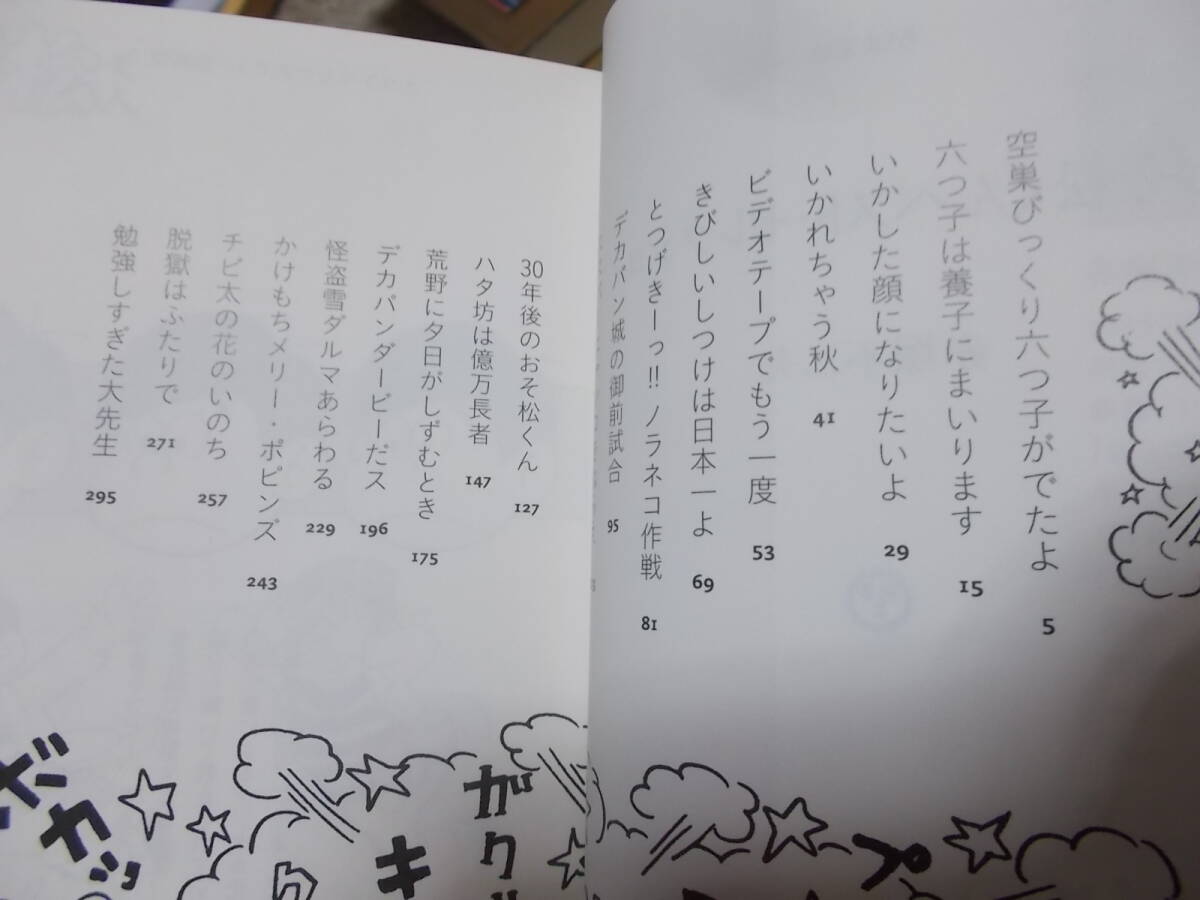 空巣びっくり六つ子がでたよ 5
六つ子は養子にまいります 15
いかした顔になりたいよ 29
いかれちゃう秋 41
ビデオテープでもう一度 53
きびしいしつけは日本一よ 69
とつげきーっ!! ノラネコ作戦 81
デカパン城の御前試合 95
30年後のおそ松くん 127
ハタ坊は億万長者 147
荒野に夕日がしずむとき 175
デカパンダービーだス 196
怪盗雪ダルマあらわる 229
かけもちメリー・ポピンズ 243
チビ太の花のいのち 257
脱獄はふたりで 271
勉強しすぎた大先生 295
ボカッ
キ
ク
ガク